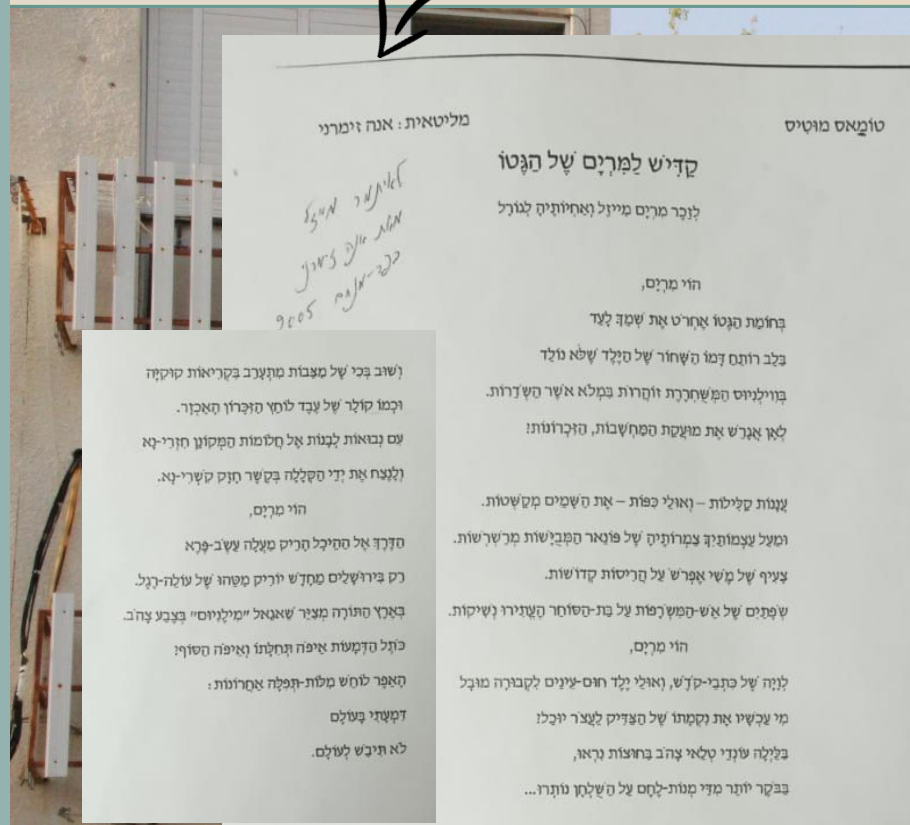 טוֹמָאס מוּטִיס
מליטאית: אנה זימרני
קַדִּישׁ לְמִרְיָם שֶׁל הַגֶּטוֹ
לְזֵכֶר מִרְיָם מַייזֶל וְאַחְיוֹתֶיהָ לְגוֹרָל
לאיתמר מייזל
מאת אנה זימרני
כפר-מנחם 2005
הוֹי מִרְיָם,
בְּחוֹמַת הַגֶּטוֹ אֶחְרֹט אֶת שְׁמֵךְ לָעַד
בַּלֵּב רוֹתֵחַ דָּמוֹ הַשָּׁחוֹר שֶׁל הַיֶּלֶד שֶׁלֹּא נוֹלַד
בְּוִוילְנְיוּס הַמְּשֻׁחְרֶרֶת זוֹהֲרוֹת בִּמְלֹא אֹשֶׁר הַשְּׂדֵרוֹת.
לְאָן אֲגָרֵשׁ אֶת מוּעֲקַת הַמַּחְשָׁבוֹת, הַזִּכְרוֹנוֹת!
עֲנָנוֹת קַלִּילוֹת – וְאוּלַי כִּפּוֹת – אֶת הַשָּׁמַיִם מְקַשְּׁטוֹת.
וּמֵעַל עַצְמוֹתַיִךְ צַמְּרוֹתֶיהָ שֶׁל פּוֹנָאר הַמְּבֻיָּשׁוֹת מְרַשְׁרְשׁוֹת.
צָעִיף שֶׁל מֶשִׁי אֶפְרֹשׂ עַל הֲרִיסוֹת קְדוֹשׁוֹת.
שְׂפָתַיִם שֶׁל אֵשׁ-הַמִּשְׂרָפוֹת עַל בַּת-הַסּוֹחֵר הֶעְתִּירוּ נְשִׁיקוֹת.
הוֹי מִרְיָם,
לְוָיָה שֶׁל כִּתְבֵי-קֹדֶשׁ, וְאוּלַי יֶלֶד חוּם-עֵינַיִם לִקְבוּרָה מוּבָל
מִי עַכְשָׁיו אֶת נִקְמָתוֹ שֶׁל הַצַּדִּיק לַעֲצֹר יוּכַל!
בַּלַּיְלָה עוֹנְדֵי טְלַאי צָהֹב בַּחוּצוֹת נִרְאוּ,
בַּבֹּקֶר יוֹתֵר מִדַּי מְנוֹת-לֶחֶם עַל הַשֻּׁלְחָן נוֹתְרוּ...
וְשׁוּב בְּכִי שֶׁל מַצֵּבוֹת מִתְעָרֵב בִּקְרִיאוֹת קוּקִיָּה
וּכְמוֹ קוֹלָר שֶׁל עֶבֶד לוֹחֵץ הַזִּכָּרוֹן הָאַכְזָר.
עִם נְבוּאוֹת לְבָנוֹת אֶל חֲלוֹמוֹת הַמְּקוֹנֵן חִזְרִי-נָא
וְלָנֶצַח אֶת יְדֵי הַקְּלָלָה בְּקֶשֶׁר חָזָק קִשְׁרִי-נָא.
הוֹי מִרְיָם,
הַדֶּרֶךְ אֶל הַהֵיכָל הָרֵיק מַעֲלָה עֵשֶׂב-פֶּרֶא
רַק בִּירוּשָׁלַיִם מֵחָדָשׁ יוֹרִיק מַטֵּהוּ שֶׁל עוֹלֵה-רֶגֶל.
בְּאֶרֶץ הַתּוֹרָה מְצַיֵּר שָׁאגָאל "מִילֶנְיוּם" בְּצֶבַע צָהֹב.
כֹּתֶל הַדְּמָעוֹת אֵיפֹה תְּחִלָּתוֹ וְאֵיפֹה הַסּוֹף!
הָאֵפֶר לוֹחֵשׁ מִלּוֹת-תְּפִלָּה אַחֲרוֹנוֹת:
דִּמְעָתִי בָּעוֹלָם
לֹא תִּיבַשׁ לְעוֹלָם.